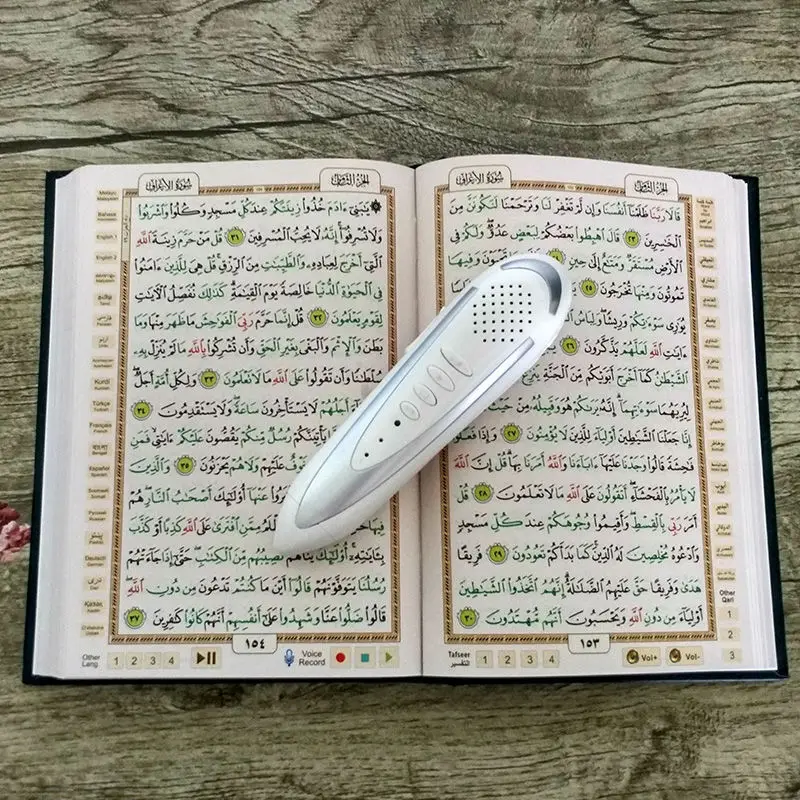 سُورَةُ الأَعْرَافِ
الجُزءُ الثَّامِنُ
قَالَا رَبَّنَا ظَلَمْنَا أَنفُسَنَا وَإِن لَّمْ تَغْفِرْ لَنَا وَتَرْحَمْنَا لَنَكُونَنَّ مِنَ
ٱلْخَـٰسِرِينَ ٢٣ قَالَ ٱهْبِطُوا۟ بَعْضُكُمْ لِبَعْضٍ عَدُوٌّ وَلَكُمْ فِى
ٱلْأَرْضِ مُسْتَقَرٌّ وَمَتَـٰعٌ إِلَىٰ حِينٍ وَفِيهَا
تَمُوتُونَ وَمِنْهَا تُخْرَجُونَ ٢٥
يُوَٰرِى سَوْءَٰتِكُمْ وَرِيشًا وَلِبَاسُ
ءَايَـٰتِ ٱللَّهِ لَعَلَّهُمْ يَذَّكَّرُونَ ٢٦
ٱلشَّيْطَـٰنُ كَمَآ أَخْرَجَ أَبَوَيْكُم مِّنَ ٱلْجَنَّةِ يَنزِعُ
لِيُرِيَهُمَا سَوْءَٰتِهِمَآ إِنَّهُۥ يَرَىٰكُمْ هُوَ وَقَبِيلُهُۥ مِنْ حَيْثُ
إِنَّا جَعَلْنَا ٱلشَّيَـٰطِينَ أَوْلِيَآءَ لِلَّذِينَ لَا يُؤْمِنُونَ ٢٧ وَإِذَا فَعَلُوا۟
فَـٰحِشَةً قَالُوا۟ وَجَدْنَا عَلَيْهَآ ءَابَآءَنَا وَٱللَّهُ أَمَرَنَا بِهَا قُلْ إِنَّ ٱللَّهَ
لَا يَأْمُرُ بِٱلْفَحْشَآءِ أَتَقُولُونَ عَلَى ٱللَّهِ مَا لَا تَعْلَمُونَ ٢٨ قُلْ
أَمَرَ رَبِّى بِٱلْقِسْطِ وَأَقِيمُوا۟ وُجُوهَكُمْ عِندَ كُلِّ مَسْجِدٍ
وَٱدْعُوهُ مُخْلِصِينَ لَهُ ٱلدِّينَ كَمَا بَدَأَكُمْ تَعُودُونَ ٢٩ فَرِيقًا
هَدَىٰ وَفَرِيقًا حَقَّ عَلَيْهِمُ ٱلضَّلَـٰلَةُ إِنَّهُمُ ٱتَّخَذُوا۟ ٱلشَّيَـٰطِينَ
أَوْلِيَآءَ مِن دُونِ ٱللَّهِ وَيَحْسَبُونَ أَنَّهُم مُّهْتَدُونَ ٣٠
١٥٣
Other Qari
1
2
3
Tafseer التفسير 1 2 3 4
Vol+ Vol-
سُورَةُ الأَعْرَافِ
الجُزءُ الثَّامِنُ
يَـٰبَنِىٓ ءَادَمَ خُذُوا۟ زِينَتَكُمْ عِندَ كُلِّ مَسْجِدٍ وَكُلُوا۟ وَٱشْرَبُوا۟
وَلَا تُسْرِفُوٓا۟ إِنَّهُۥ لَا يُحِبُّ ٱلْمُسْرِفِينَ ٣١ قُلْ مَنْ حَرَّمَ زِينَةَ ٱللَّهِ
ٱلَّتِىٓ أَخْرَجَ لِعِبَادِهِۦ وَٱلطَّيِّبَـٰتِ مِنَ ٱلرِّزْقِ قُلْ هِىَ لِلَّذِينَ ءَامَنُوا۟
فِى ٱلْحَيَوٰةِ ٱلدُّنْيَا خَالِصَةً يَوْمَ ٱلْقِيَـٰمَةِ كَذَٰلِكَ نُفَصِّلُ ٱلْـَٔايَـٰتِ
لِقَوْمٍ يَعْلَمُونَ ٣٢ قُلْ إِنَّمَا حَرَّمَ رَبِّىَ ٱلْفَوَٰحِشَ مَا ظَهَرَ مِنْهَا وَمَا
بَطَنَ وَٱلْإِثْمَ وَٱلْبَغْىَ بِغَيْرِ ٱلْحَقِّ وَأَن تُشْرِكُوا۟ بِٱللَّهِ مَا لَمْ يُنَزِّلْ بِهِۦ
سُلْطَـٰنًا وَأَن تَقُولُوا۟ عَلَى ٱللَّهِ مَا لَا تَعْلَمُونَ ٣٣ وَلِكُلِّ أُمَّةٍ أَجَلٌ
أَجَلُهُمْ لَا يَسْتَأْخِرُونَ سَاعَةً وَلَا يَسْتَقْدِمُونَ ٣٤
يَأْتِيَنَّكُمْ رُسُلٌ مِّنكُمْ يَقُصُّونَ عَلَيْكُمْ ءَايَـٰتِى فَمَنِ
خَوْفٌ عَلَيْهِمْ وَلَا هُمْ يَحْزَنُونَ ٣٥ وَٱلَّذِينَ
عَنْهَآ أُو۟لَـٰٓئِكَ أَصْحَـٰبُ ٱلنَّارِ هُمْ
فِيهَا مِمَّنِ ٱفْتَرَىٰ عَلَى ٱللَّهِ كَذِبًا أَوْ كَذَّبَ
بِـَٔايَـٰتِهِۦٓ أُو۟لَـٰٓئِكَ يَنَالُهُمْ نَصِيبُهُم مِّنَ ٱلْكِتَـٰبِ حَتَّىٰٓ إِذَا جَآءَتْهُمْ
رُسُلُنَا يَتَوَفَّوْنَهُمْ قَالُوٓا۟ أَيْنَ مَا كُنتُمْ تَدْعُونَ مِن دُونِ ٱللَّهِ
قَالُوا۟ ضَلُّوا۟ عَنَّا وَشَهِدُوا۟ عَلَىٰٓ أَنفُسِهِمْ أَنَّهُمْ كَانُوا۟ كَـٰفِرِينَ ٣٧
١٥٤
English 1
English 2
فارسی
اردو
Kurdi
Türkçe
Français
বাংলা
Español
Русский
پښتو
Deutsch
دری
Other Lang 1 2 3 4
Voice Record